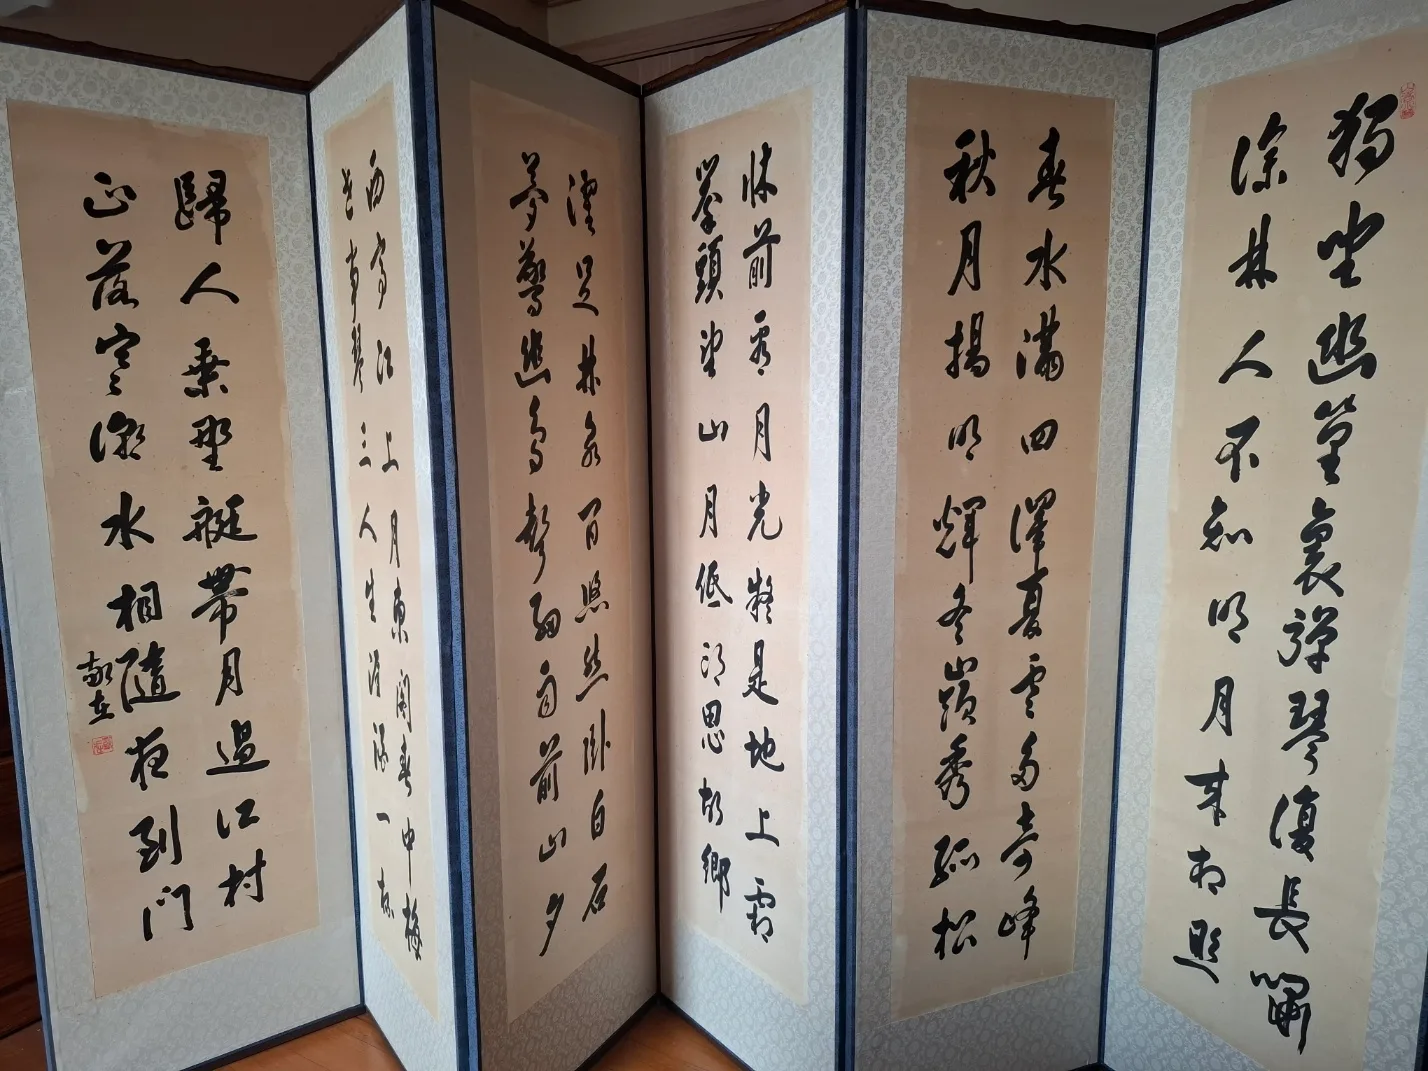 獨坐幽篁裏彈琴復長嘯
深林人不知明月来相照
春水滿四澤夏雲多奇峰
秋月揚明輝冬嶺秀孤松
牀前看月光疑是地上霜
擧頭望山月低頭思故鄉
濯足林泉間悠然臥白石
夢驚幽鳥聲細雨前山夕
西亭江上月東閣雪中梅
世事琴三尺生涯酒一杯
歸人乘野艇帶月過江村
正落寒潮水相隨夜到門